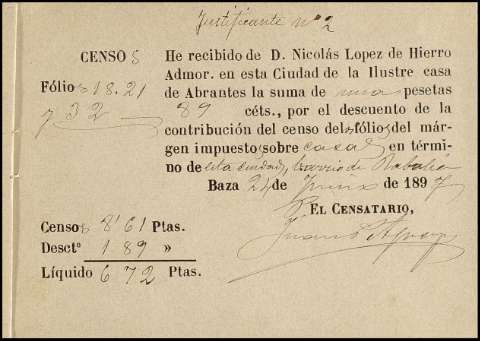 Justificante nº 2
CENSO s
Fólios 18. 21
y 32
He recibido de D. Nicolás Lopez de Hierro
Admor. en esta Ciudad de la Ilustre casa
de Abrantes la suma de una pesetas
89 céts., por el descuento de la
contribución del censo delos fólios del már-
gen impuesto sobre casas en térmi-
no de esta ciudad, barrio de Rabalia
Baza 24 de Junio de 1897
EL CENSATARIO,
Juan
Censos 8'61 Ptas.
Desctº 1 89 »
Líquido 6 72 Ptas.